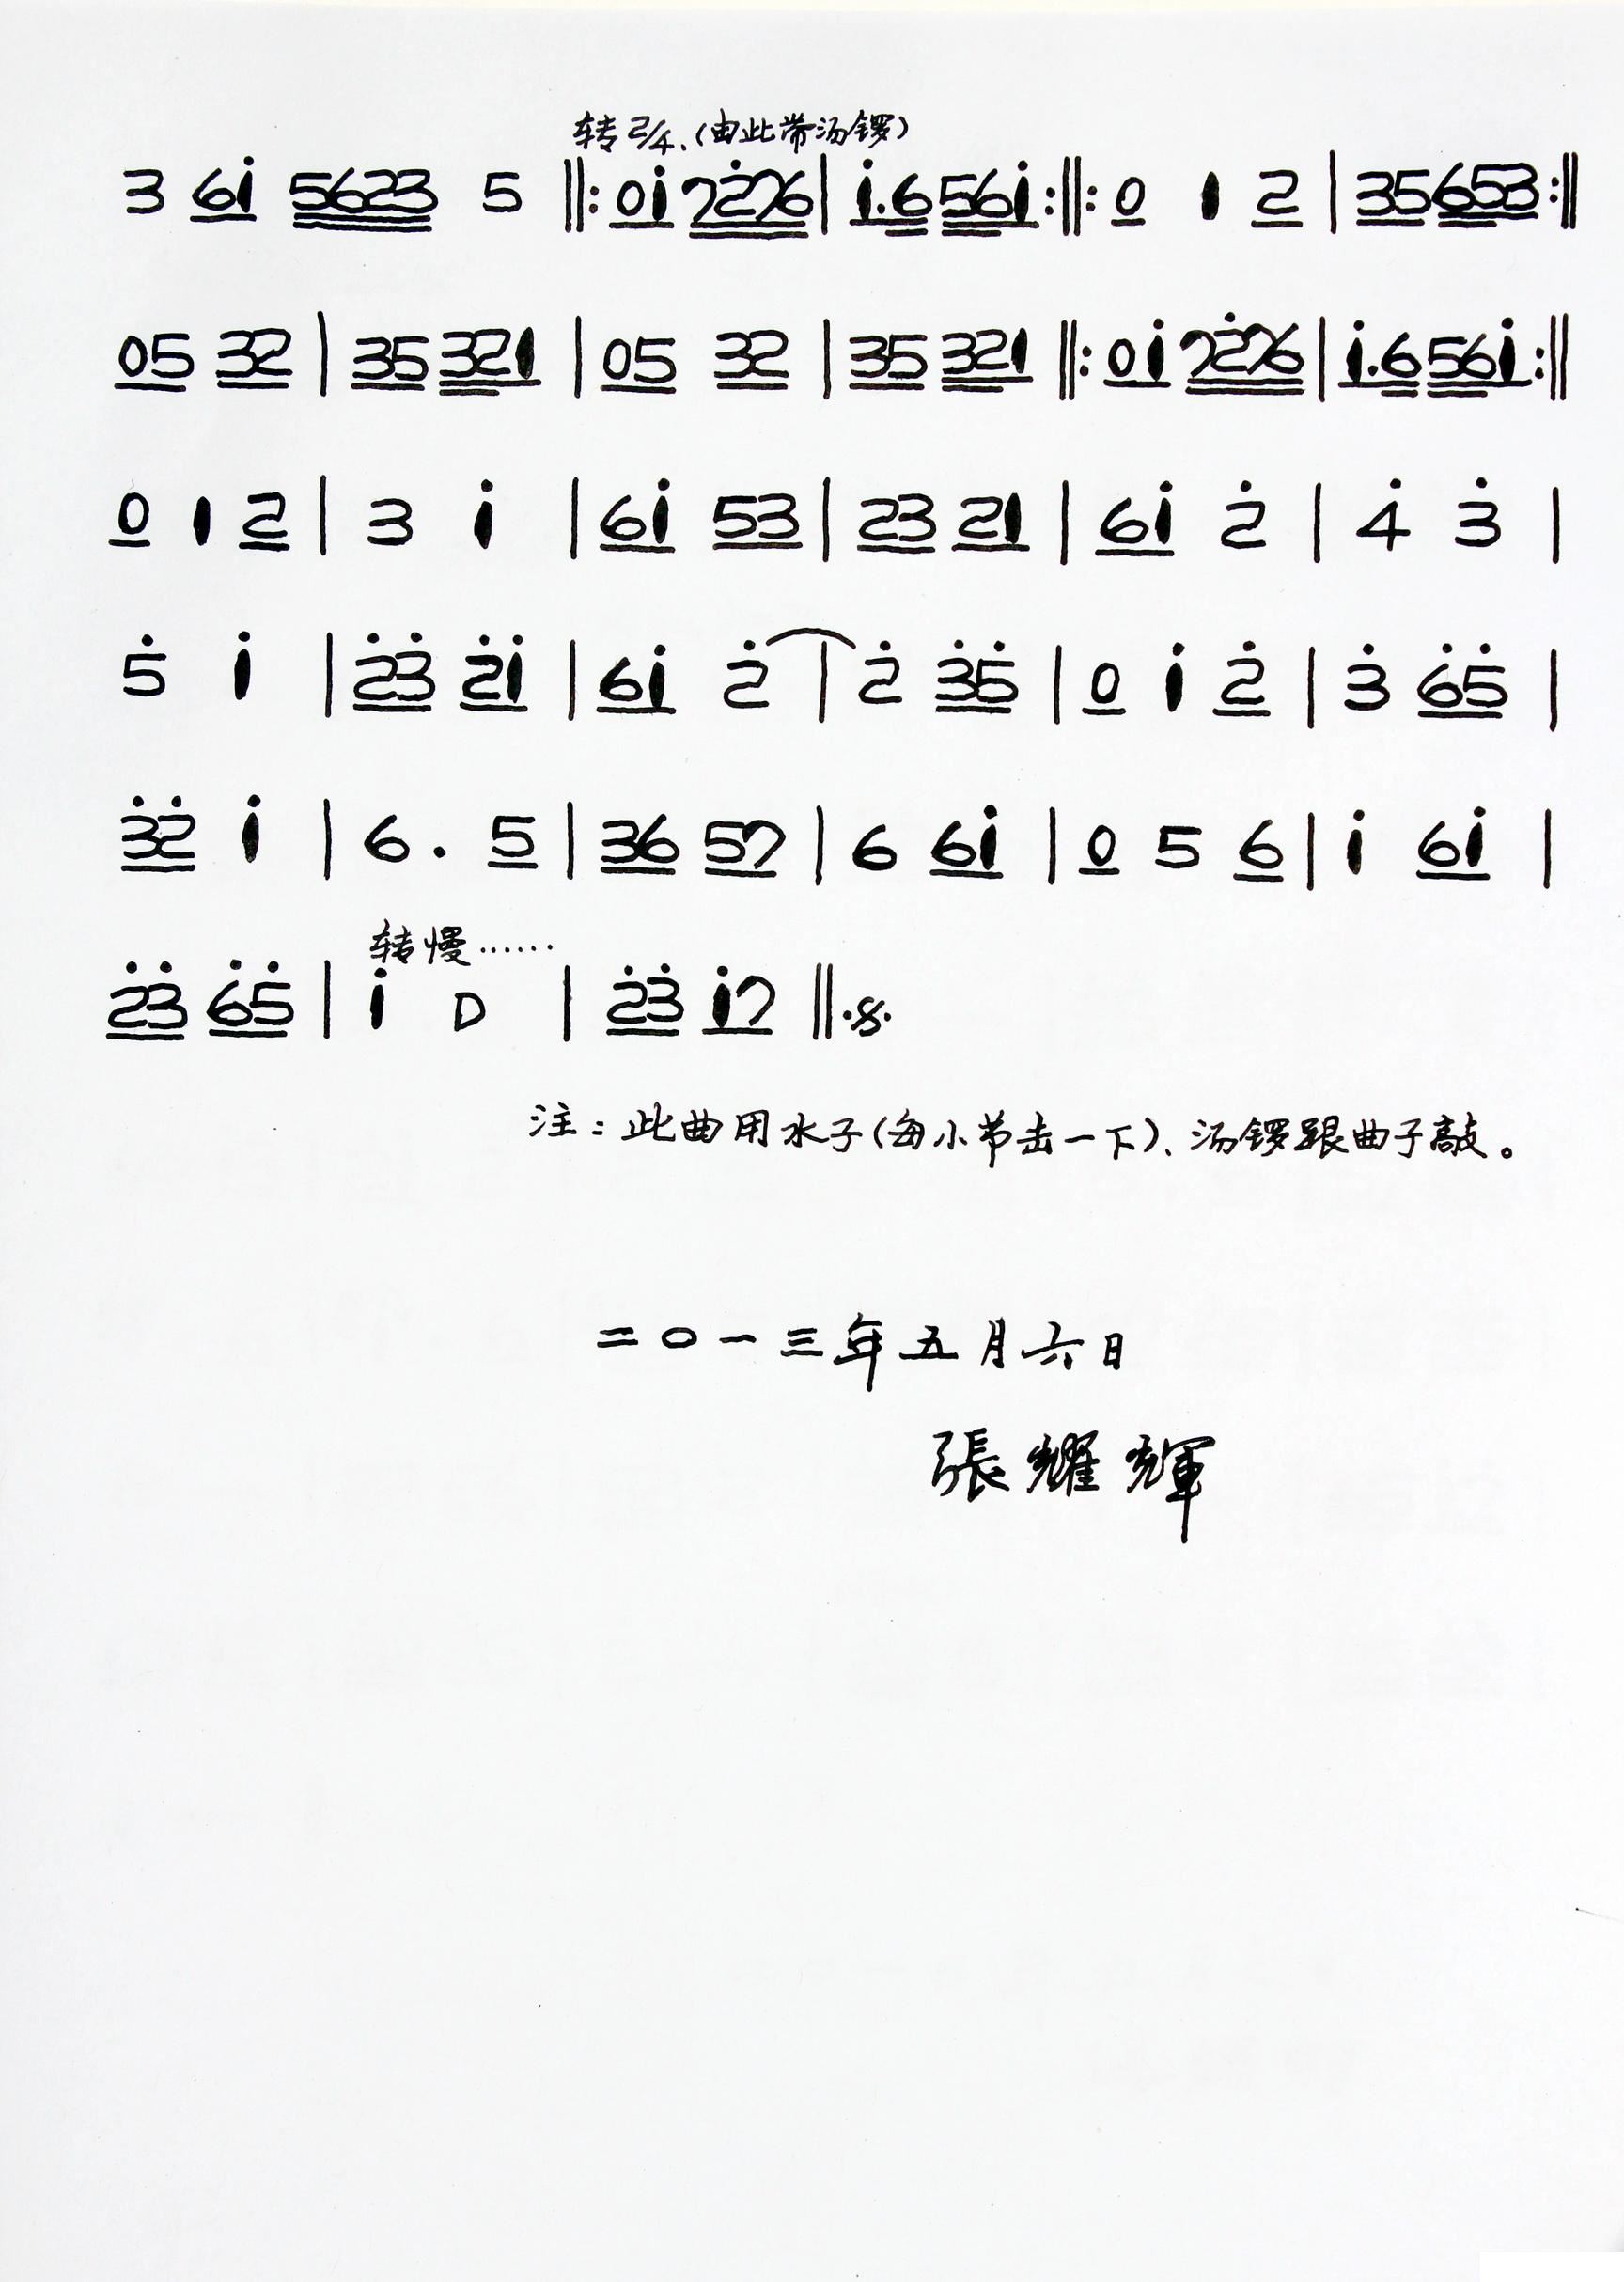 转2/4、(由此带汤锣)
3 6i̇ 5623 5 ‖: 0i̇ 72̇76 | i̇.6 56i̇ :‖: 0 1 2 | 35 653 :‖
05 32 | 35 321 | 05 32 | 35 321 ‖: 0i̇ 72̇76 | i̇.6 56i̇ :‖
0 1 2 | 3 i̇ | 6i̇ 53 | 23 21 | 6i̇ 2̇ | 4̇ 3̇ |
5̇ i̇ | 2̇3̇ 2̇i̇ | 6i̇ 2̇ | 2̇ 3̇5̇ | 0 i̇ 2̇ | 3̇ 6̇5̇ |
3̇2̇ i̇ | 6 . 5 | 36 57 | 6 6i̇ | 0 5 6 | i̇ 6i̇ |
转慢……
2̇3̇ 6̇5̇ | i̇ 0 | 2̇3̇ i̇7 ‖ 𝄋
注：此曲用水子(每小节击一下)、汤锣跟曲子敲。
二〇一三年五月六日
張耀輝